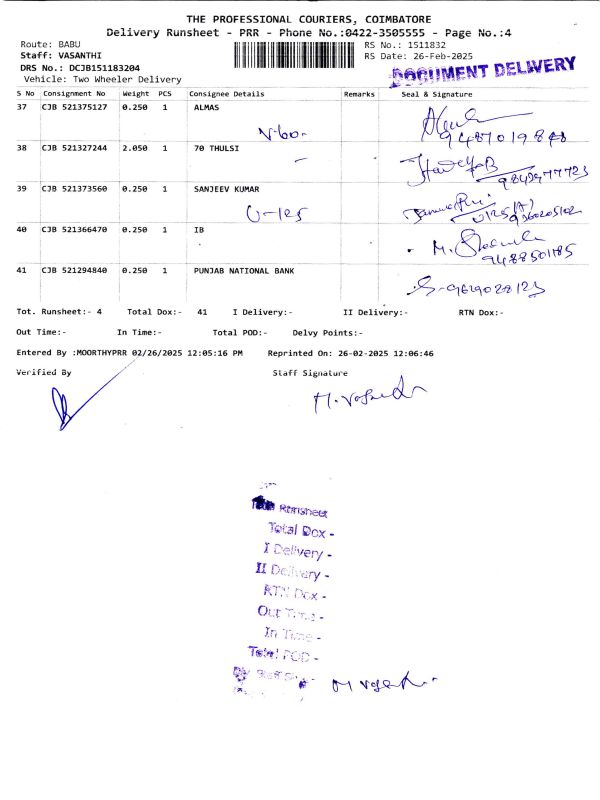 THE PROFESSIONAL COURIERS, COIMBATORE
Delivery Runsheet - PRR - Phone No.:0422-3505555 - Page No.:4
Route: BABU RS No.: 1511832
Staff: VASANTHI RS Date: 26-Feb-2025
DRS No.: DCJB151183204
Vehicle: Two Wheeler Delivery
DOCUMENT DELIVERY
S No Consignment No Weight PCS Consignee Details Remarks Seal & Signature
37 CJB 521375127 0.250 1 ALMAS
38 CJB 521327244 2.050 1 70 THULSI
39 CJB 521373560 0.250 1 SANJEEV KUMAR
U-125
40 CJB 521366470 0.250 1 IB
9488501185
41 CJB 521294840 0.250 1 PUNJAB NATIONAL BANK
Tot. Runsheet:- 4 Total Dox:- 41 I Delivery:- II Delivery:- RTN Dox:-
Out Time:- In Time:- Total POD:- Delvy Points:-
Entered By :MOORTHYPRR 02/26/2025 12:05:16 PM Reprinted On: 26-02-2025 12:06:46
Verified By Staff Signature
Runsheet
Total Dox -
I Delivery -
II Delivery -
RTN Dox -
Out Time -
In Time -
Total POD -